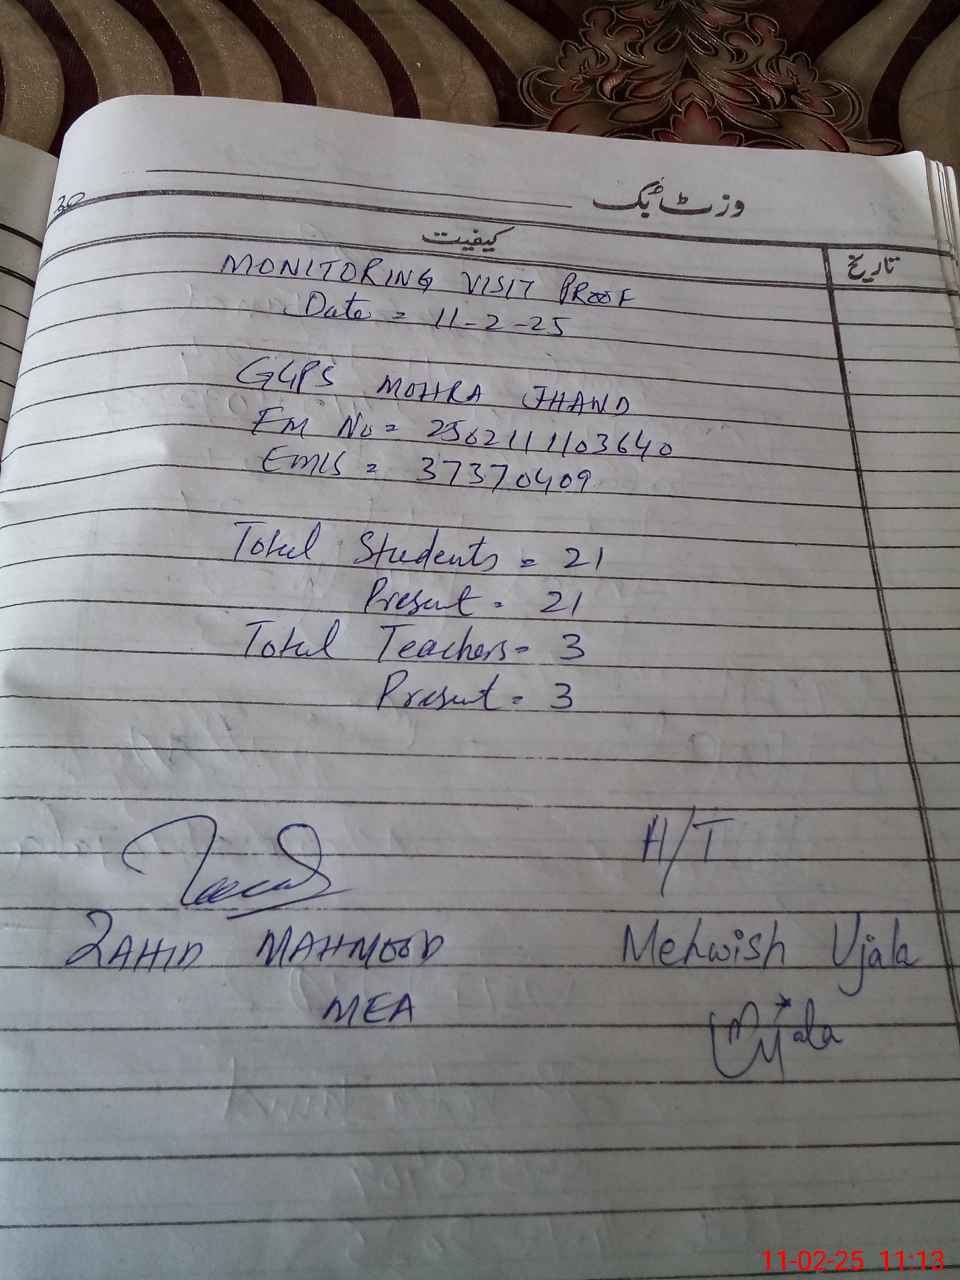 وزٹ بک
30
کیفیت
تاریخ
MONITORING VISIT PROOF
Date = 11-2-25
GGPS MOHRA JHAND
FM No = 2562111103640
EMIS = 37370409
Total Students = 21
Present = 21
Total Teachers = 3
Present = 3
H/T
ZAHID MAHMOOD
Mehwish Ujala
MEA
Ujala
11-02-25 11:13